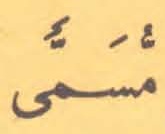 مُسَمَّى